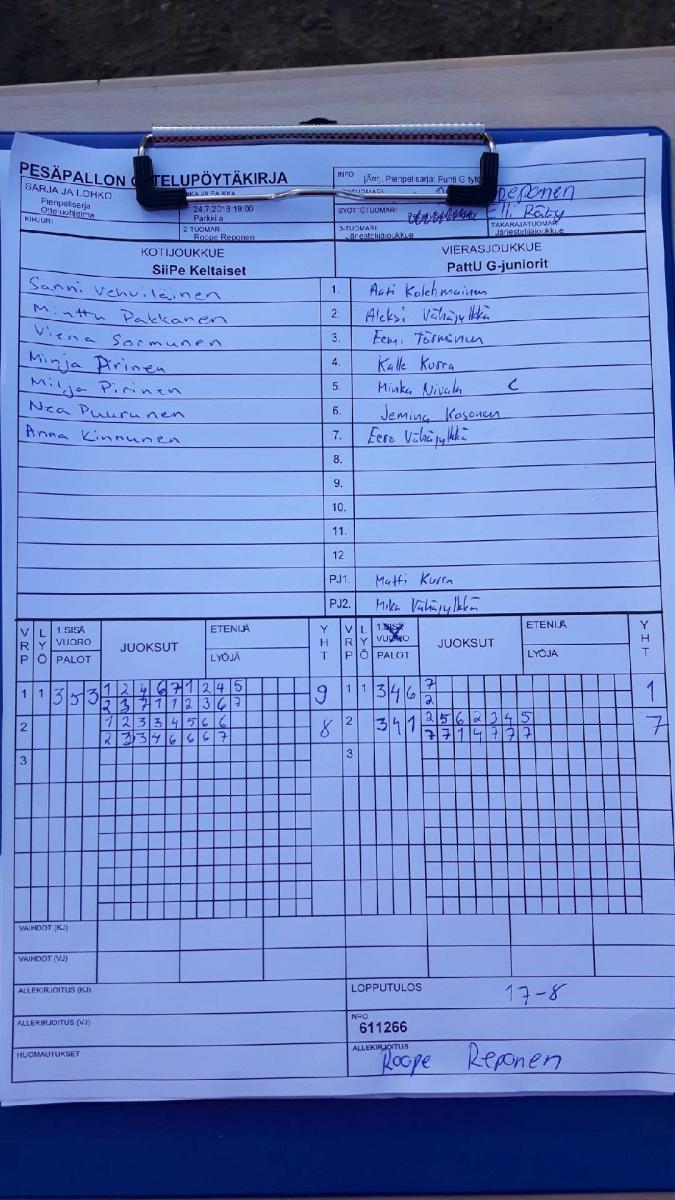 PESÄPALLON OTTELUPÖYTÄKIRJA
SARJA JA LOHKO
Pienpelisarja
Otteluohjelma
24.7.2018 19:00
Parkkila
INFO
TUOMARI
Reponen
KIRJURI
2 TUOMARI
Roope Reponen
SYÖTTÖTUOMARI
Elli Räty
3-TUOMARI
Järjestelijäjoukkue
TAKARAJATUOMARI
Järjestelijäjoukkue
KOTIJOUKKUE
SiiPe Keltaiset
VIERASJOUKKUE
PattU G-juniorit
Sanni Vehviläinen 1. Aati Kolehmainen
Minttu Pakkanen 2. Aleksi Vähäjylkkä
Viena Sormunen 3. Eemi Törmänen
Minja Pirinen 4. Kalle Kurra
Milja Pirinen 5. Minka Nivala C
Nea Puurunen 6. Jemina Kosonen
Anna Kinnunen 7. Eero Vähäjylkkä
8.
9.
10.
11.
12.
PJ1. Matti Kurra
PJ2. Mika Vähäjylkkä
VRP LYÖ 1.SISÄ VUORO PALOT JUOKSUT ETENIJÄ LYÖJÄ YHT VRP LYÖ 1.SISÄ VUORO PALOT JUOKSUT ETENIJÄ LYÖJÄ YHT
1 1 3 5 3 1 2 4 6 7 1 2 4 5 9 1 1 3 4 6 7 1
2 3 7 1 1 2 3 6 7 2
2 1 2 3 3 4 5 6 6 8 2 3 4 1 2 5 6 2 3 4 5 7
2 3 3 4 6 6 6 7 7 7 1 4 7 7 7
3 3
VAIHDOT (KJ)
VAIHDOT (VJ)
ALLEKIRJOITUS (KJ)
LOPPUTULOS 17-8
ALLEKIRJOITUS (VJ)
NRO
611266
HUOMAUTUKSET
ALLEKIRJOITUS
Roope Reponen